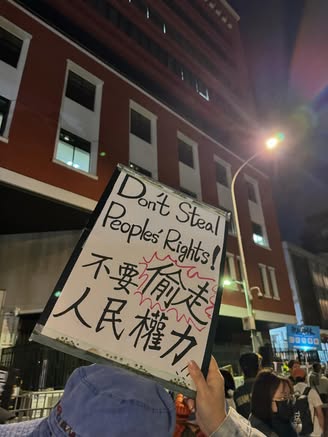 Don't Steal
Peoples' Rights!
不要偷走
人民權力